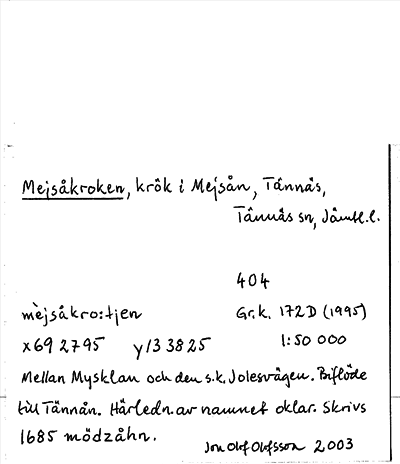 Mejsåkroken, krök i Mejsån, Tännäs,
Tännäs sn, Jämtl.l.
404
mèjsåkro:tjen
Gr.k. 172D (1995)
x692795 y133825
1:50 000
Mellan Mysklan och den s.k. Jolesvägen. Biflöde
till Tännån. Härledn. av namnet oklar. Skrivs
1685 mödzåhn.
Jon Olof Olofsson 2003